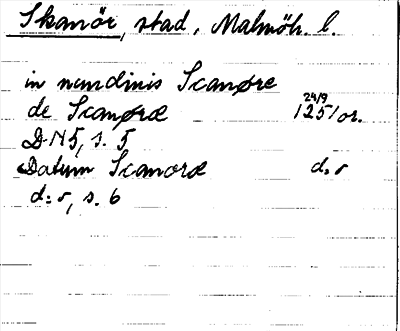 Skanör, stad, Malmöh. l.
in nundinis Scanøre
24/9
de Scanøræ 1251 or.
DN5, s. 5
Datum Scanoræ d:o
d:o, s. 6